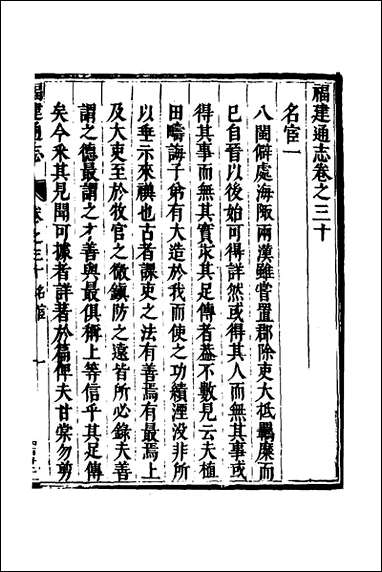 福建通志卷之三十
名宦一
八閩僻處海陬兩漢雖嘗置郡除吏大抵羈縻而
已自晉以後始可得詳然或得其人而無其事或
得其事而無其實求其足傳者葢不數見云夫植
田疇誨子弟有大造於我而使之功績湮没非所
以垂示來禩也古者課吏之法有善焉有最焉上
及大吏至於牧官之微鎮防之遠皆所必錄夫善
謂之德最謂之才善與最俱稱上等信乎其足傳
矣今釆其見聞可據者詳著於篇俾夫甘棠勿剪
福建通志
卷之三十 名宦
一